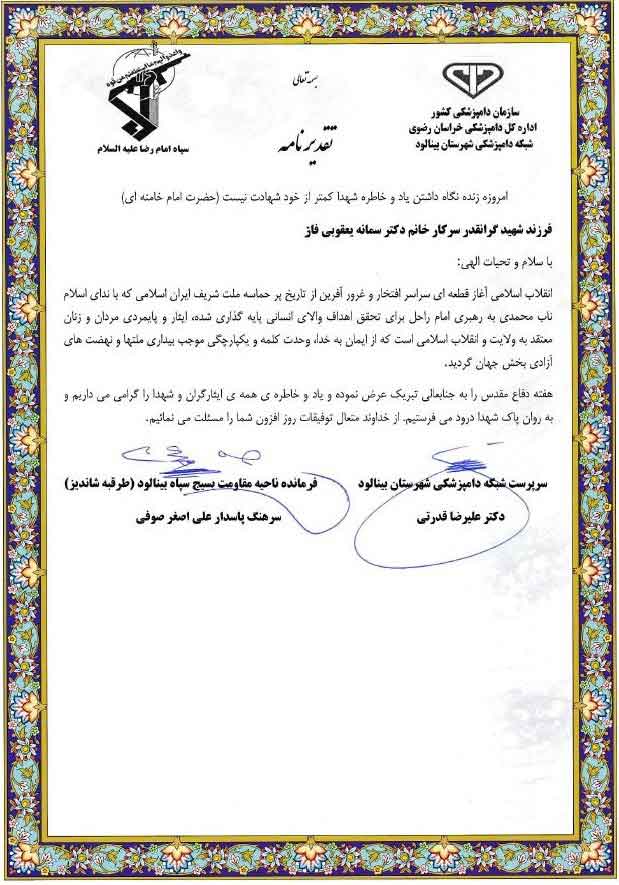 بسمه تعالی
سازمان دامپزشکی کشور
اداره کل دامپزشکی خراسان رضوی
شبکه دامپزشکی شهرستان بینالود
تقدیر نامه
سپاه امام رضا علیه السلام
امروزه زنده نگاه داشتن یاد و خاطره شهدا کمتر از خود شهادت نیست (حضرت امام خامنه ای)
فرزند شهید گرانقدر سرکار خانم دکتر سمانه یعقوبی فاز
با سلام و تحیات الهی:
انقلاب اسلامی آغاز قطعه ای سراسر افتخار و غرور آفرین از تاریخ پر حماسه ملت شریف ایران اسلامی که با ندای اسلام
ناب محمدی به رهبری امام راحل برای تحقق اهداف والای انسانی پایه گذاری شده، ایثار و پایمردی مردان و زنان
معتقد به ولایت و انقلاب اسلامی است که از ایمان به خدا، وحدت کلمه و یکپارچگی موجب بیداری ملتها و نهضت های
آزادی بخش جهان گردید.
هفته دفاع مقدس را به جنابعالی تبریک عرض نموده و یاد و خاطره ی همه ی ایثارگران و شهدا را گرامی می داریم و
به روان پاک شهدا درود می فرستیم. از خداوند متعال توفیقات روز افزون شما را مسئلت می نمائیم.
سرپرست شبکه دامپزشکی شهرستان بینالود
دکتر علیرضا قدرتی
فرمانده ناحیه مقاومت بسیج سپاه بینالود (طرقبه شاندیز)
سرهنگ پاسدار علی اصغر صوفی